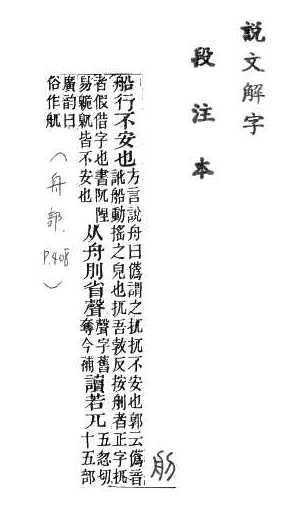 說文解字
段注本
船行不安也方言說舟曰僞謂之扤扤不安也郭云僞音
訛船動搖之皃也扤吾敦反按𦨉者正字扤
者假借字也書阢隉
易臲卼皆不安也从舟刖省聲聲字舊奪今補讀若兀五忽切十五部
廣韵曰
俗作舤
(舟部 P.408)